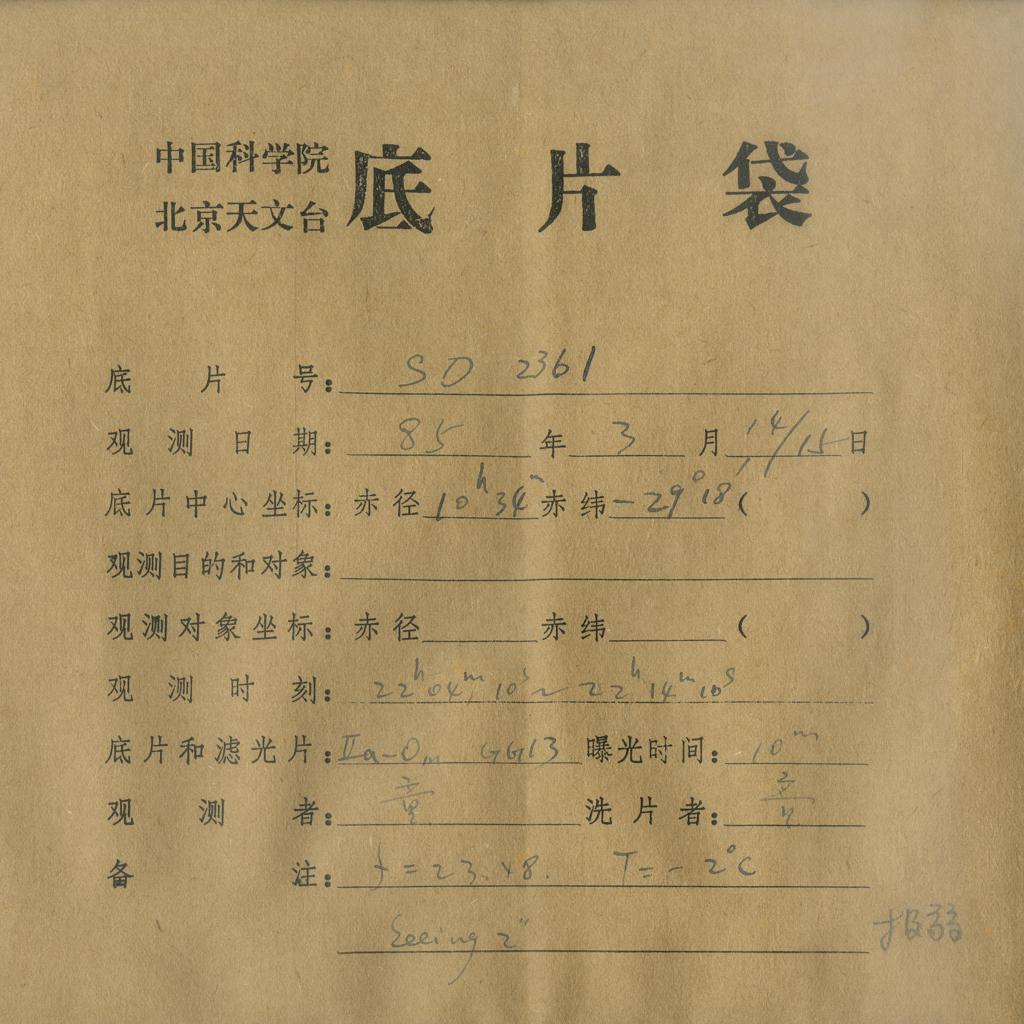 中国科学院
北京天文台
底片袋
底片号: SO 2361
观测日期: 85 年 3 月 14/15 日
底片中心坐标: 赤径 10h 34m 赤纬 -29° 18′ ( )
观测目的和对象:
观测对象坐标: 赤径 赤纬 ( )
观测时刻: 22h 04m 10s ~ 22h 14m 10s
底片和滤光片: IIa-O, GG13 曝光时间: 10m
观测者: 童 洗片者: 童
备注: f = 23.48. T = -2°C
Seeing 2″